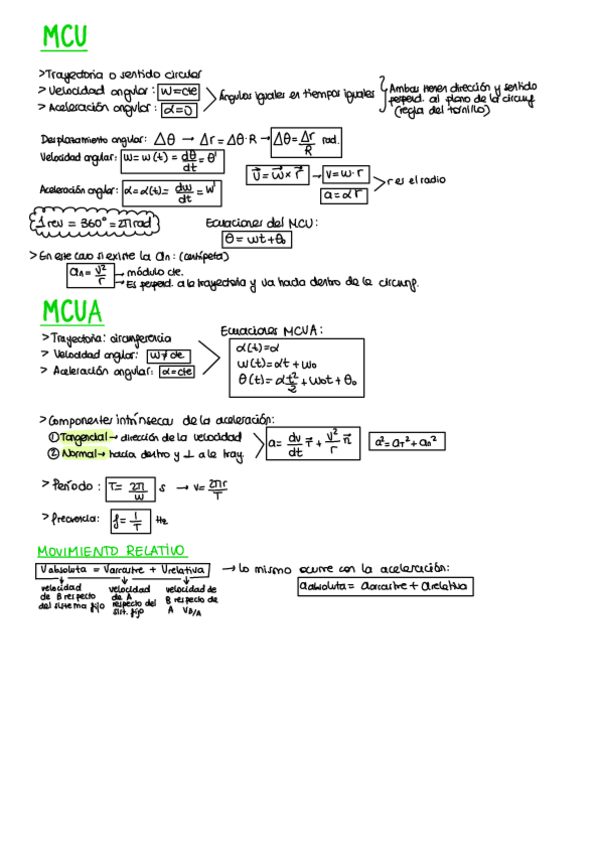 MCU
>Trayectoria o sentido circular
> Velocidad angular: w=cte
> Aceleración angular: α=0
Ángulos iguales en tiempos iguales
Ambas tienen dirección y sentido
perpend. al plano de la circunf
(regla del tornillo)
Desplazamiento angular: Δθ → Δr = Δθ·R → Δθ= Δr/R rad.
Velocidad angular: w = w(t) = dθ/dt = θ'
v⃗ = w⃗ × r⃗ → v=w·r
a=αr
r es el radio
Aceleración angular: α=α(t)= dw/dt = w'
1 rev = 360° = 2π rad
Ecuaciones del MCU:
θ = wt+θ₀
> En este caso si existe la an: (centípeta)
an= v²/r
→ módulo cte.
→ Es perpend. a la trayectoria y va hacia dentro de la circunf.
MCUA
> Trayectoria: circunferencia
> Velocidad angular: w≠cte
> Aceleración angular: α=cte
Ecuaciones MCUA:
α(t)=α
w(t)=αt + w₀
θ(t)= α t²/2 + w₀t + θ₀
>Componentes intrínsecas de la aceleración:
① Tangencial → dirección de la velocidad
② Normal → hacia dentro y ⊥ a la tray.
a= dv/dt τ⃗ + v²/r n⃗
a²= aT² + an²
> Período: T= 2π/w s → v= 2πr/T
> Frecuencia: f= 1/T Hz
MOVIMIENTO RELATIVO
Vabsoluta = Varrastre + Vrelativa
→ lo mismo ocurre con la aceleración:
aabsoluta= aarrastre + arelativa
velocidad
de B respecto
del sistema fijo
velocidad
de A
respecto del
sist. fijo
velocidad de
B respecto de
A VB/A